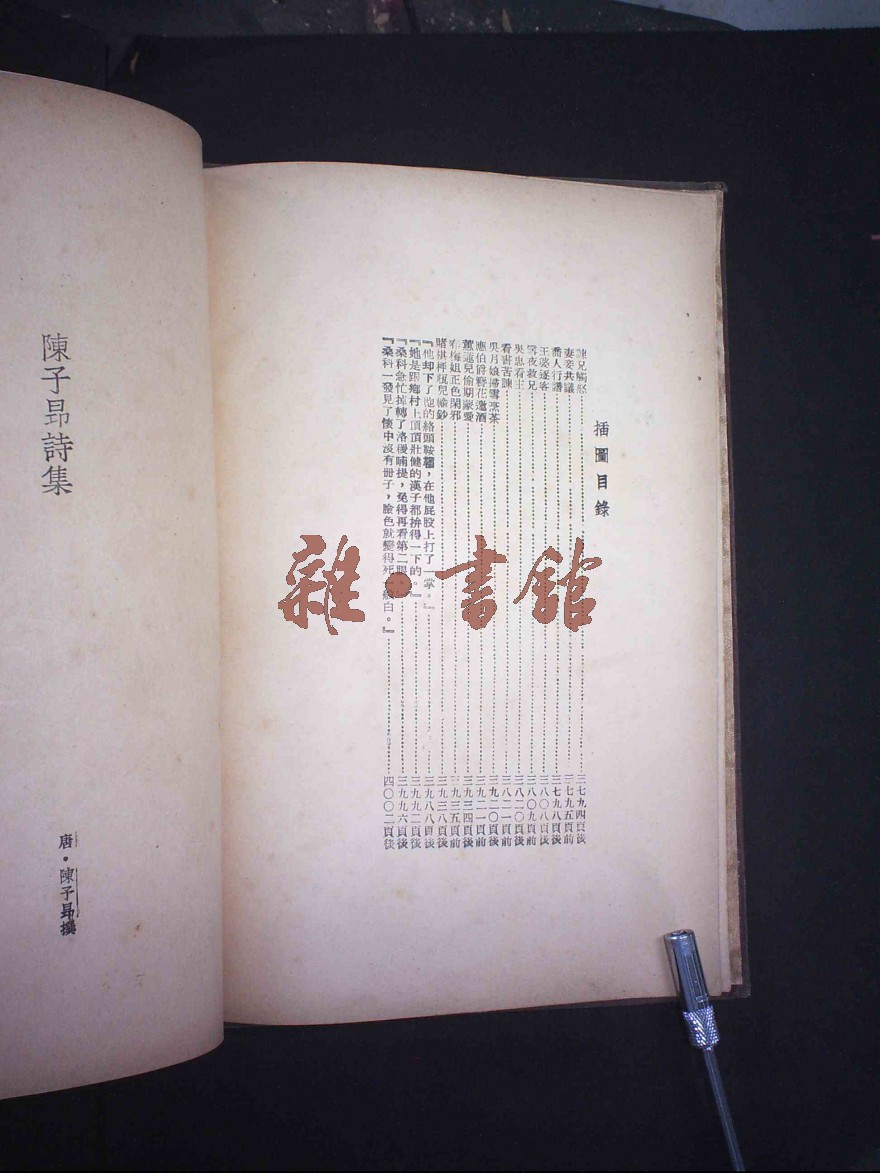 插圖目錄
諫兄觸怒……三七九四頁後
妻妾共議……三七九五頁前
喬人行譖……三七九八頁後
王婆逐客……三八〇八頁後
雪夜救兄……三八〇九頁前
吳忠看主……三八二〇頁後
看書苦諫……三八二一頁前
吳月娘掃雪烹茶……三九二〇頁後
應伯爵簪花邀酒……三九二一頁前
蕙蓮兒偷期蒙愛……三九三四頁後
春梅姐正色閑邪……三九三五頁前
賭棋枰瓶兒輸鈔……三九三八頁後
『他却下了他的絡頭鞍韉，在他屁股上打了一掌。』……三九八八頁後
『她是跟鄉村上頂頂壯健的漢子都拚得一下的。』……三九九二頁後
『桑科急忙掉轉了洛稷喃提，免得再看第二眼。』……三九九六頁後
『桑科一發見了懷中沒有冊子，臉色就變得死一般白。』……四〇〇二頁後
陳子昂詩集
唐・陳子昂撰
雜・書館